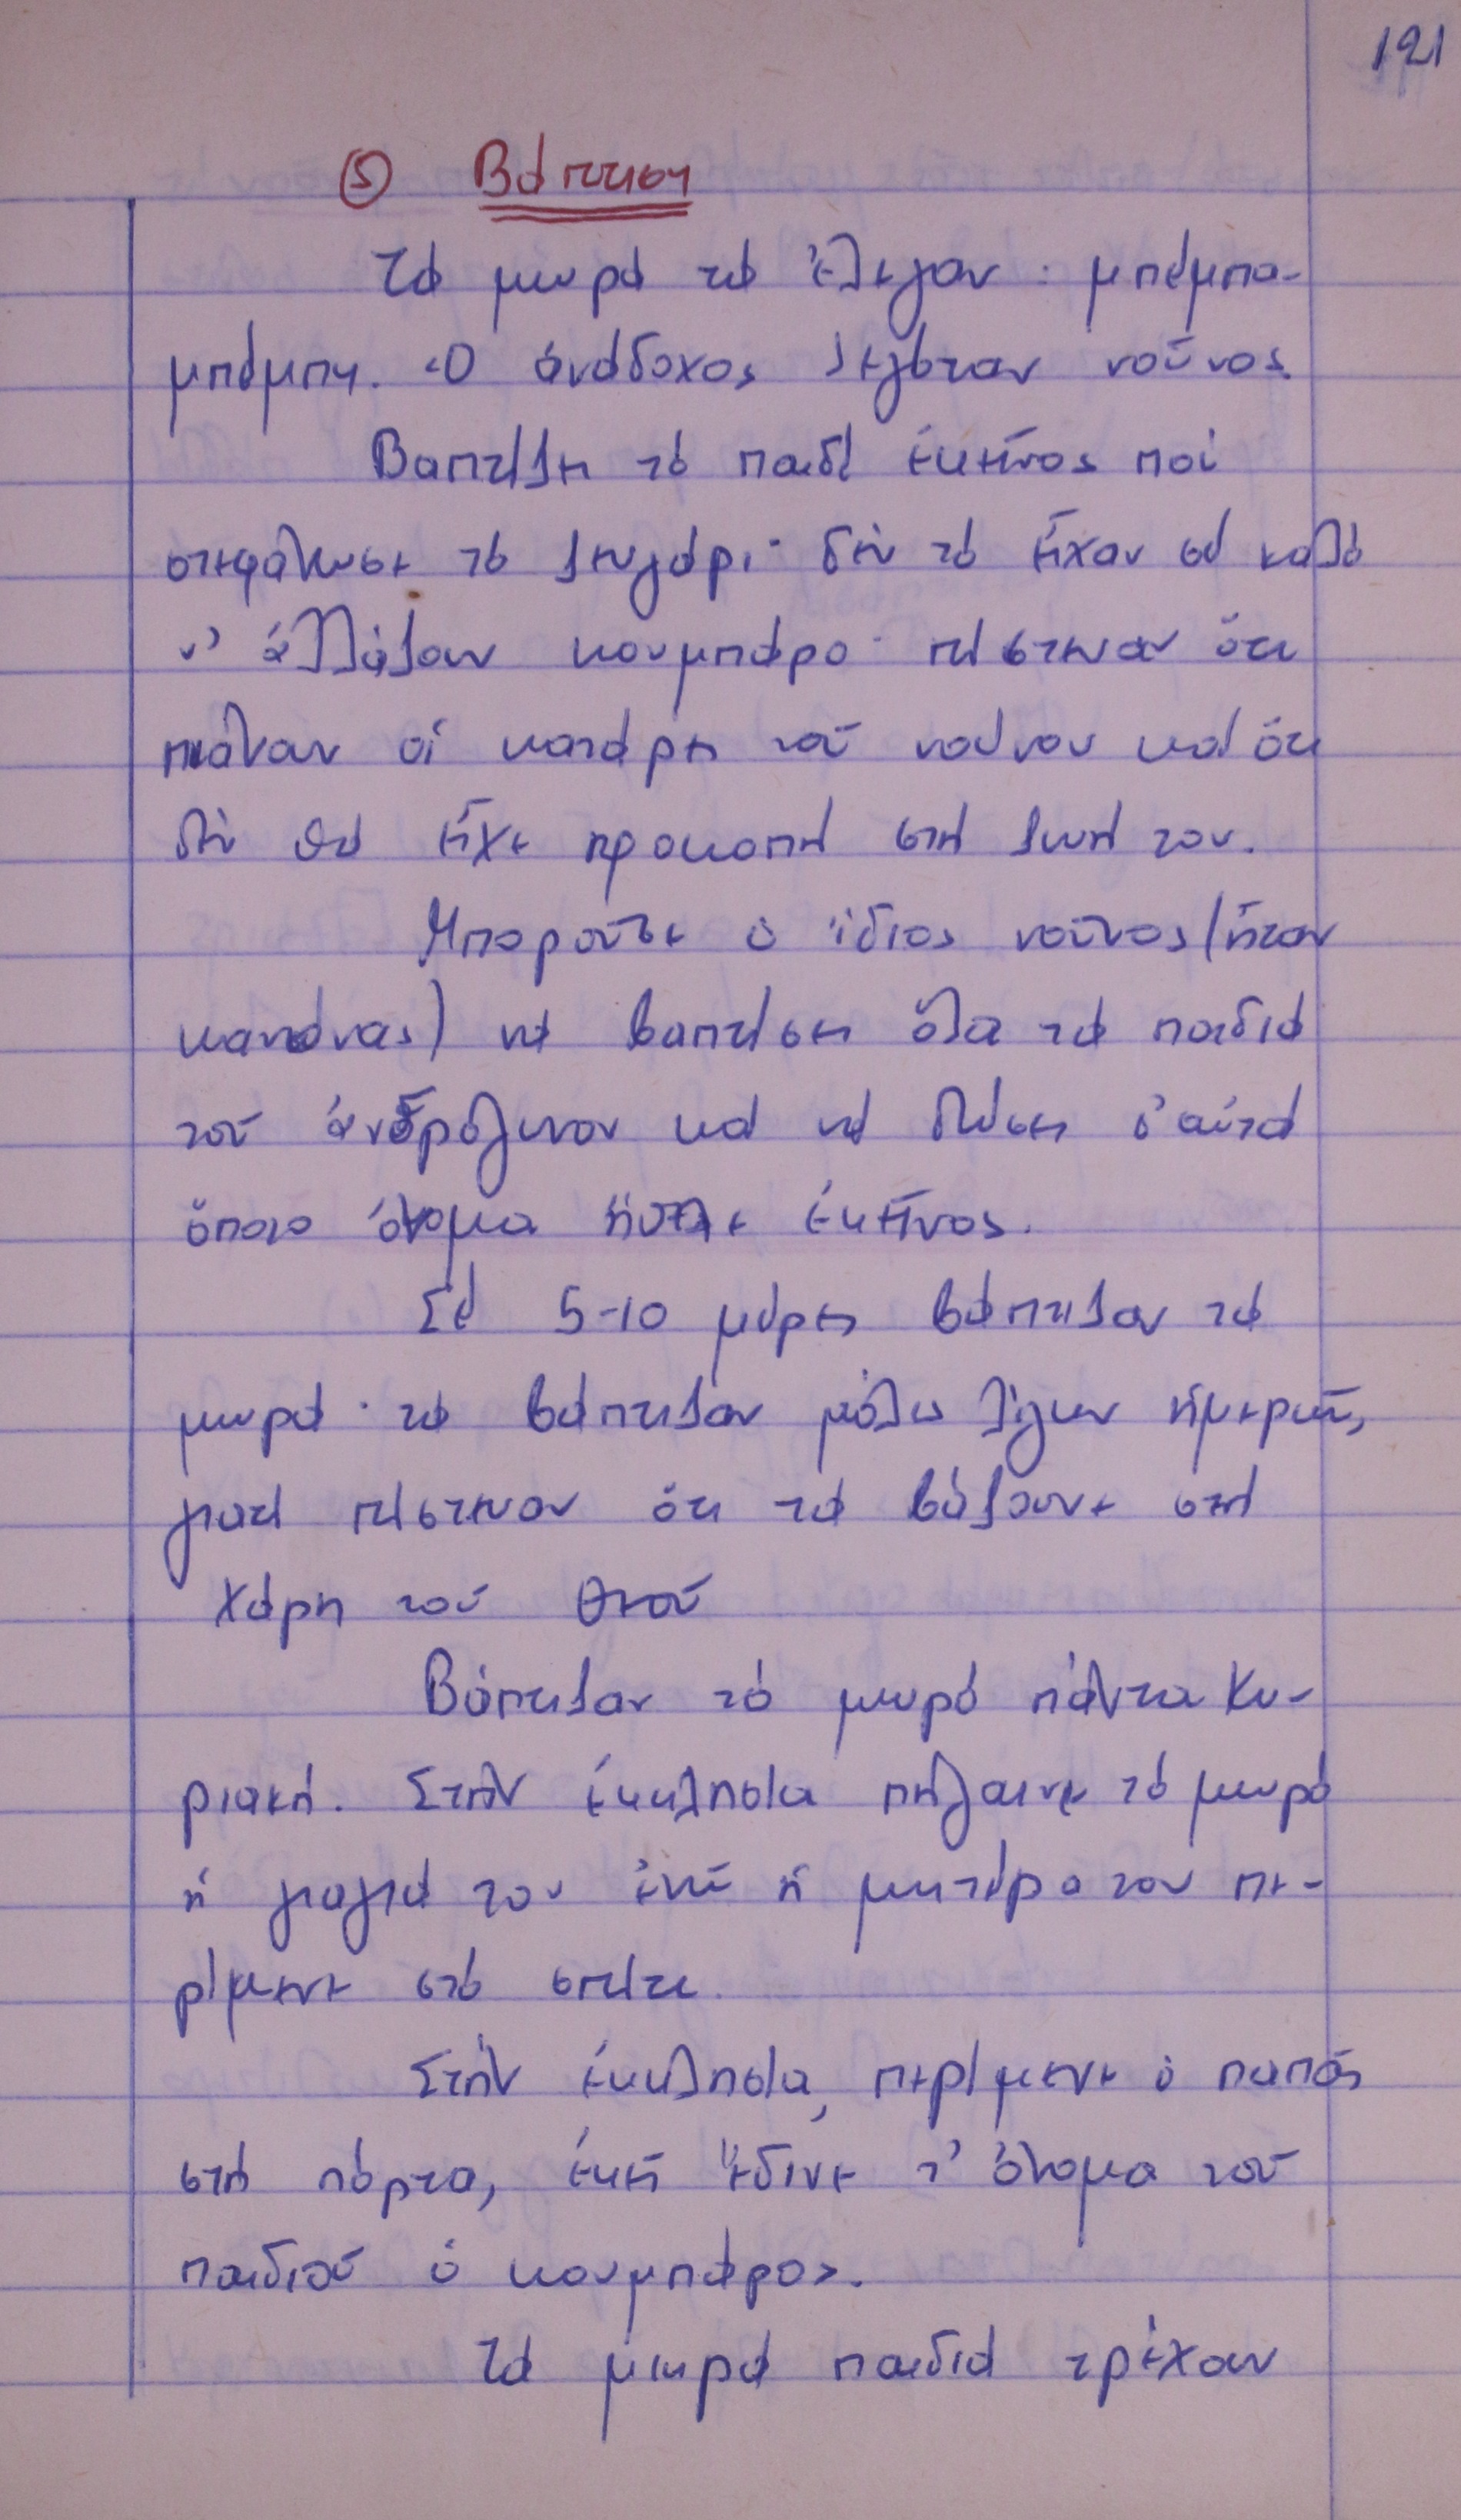 121
⑤ Βάπτιση
Τά μωρά τά ἔλεγαν : μπέμπα-
μπέμπη. Ὁ ἀνάδοχος λεγόταν νοῦνος.
Βαπτίζει τό παιδί ἐκεῖνος πού
στεφάνωσε τό ζευγάρι· δέν τό εἶχαν σέ καλό
ν' ἀλλάξουν κουμπάρο· πίστευαν ὅτι
πιάναν οἱ κατάρες τοῦ νούνου καί ὅτι
δέν θά εἶχε προκοπή στή ζωή του.
Μποροῦσε ὁ ἴδιος νοῦνος (ἦταν
κανόνας) νά βαπτίσει ὅλα τά παιδιά
τοῦ ἀνδρόγυνου καί νά δώσει σ' αὐτά
ὅποιο ὄνομα ἤθελε ἐκεῖνος.
Σέ 5-10 μέρες βάπτιζαν τά
μωρά· τά βάπτιζαν μόλις λίγων ἡμερῶν,
γιατί πίστευαν ὅτι τά βάζουνε στή
Χάρη τοῦ Θεοῦ
Βάπτιζαν τό μωρό πάντα Κυ-
ριακή. Στήν ἐκκλησία πήγαινε τό μωρό
ἡ γιαγιά του ἐνῶ ἡ μητέρα του πε-
ρίμενε στό σπίτι.
Στήν ἐκκλησία, περίμενε ὁ παπάς
στή πόρτα, ἐκεῖ ἔδινε τ' ὄνομα τοῦ
παιδιοῦ ὁ κουμπάρος.
Τά μικρά παιδιά τρέχαν